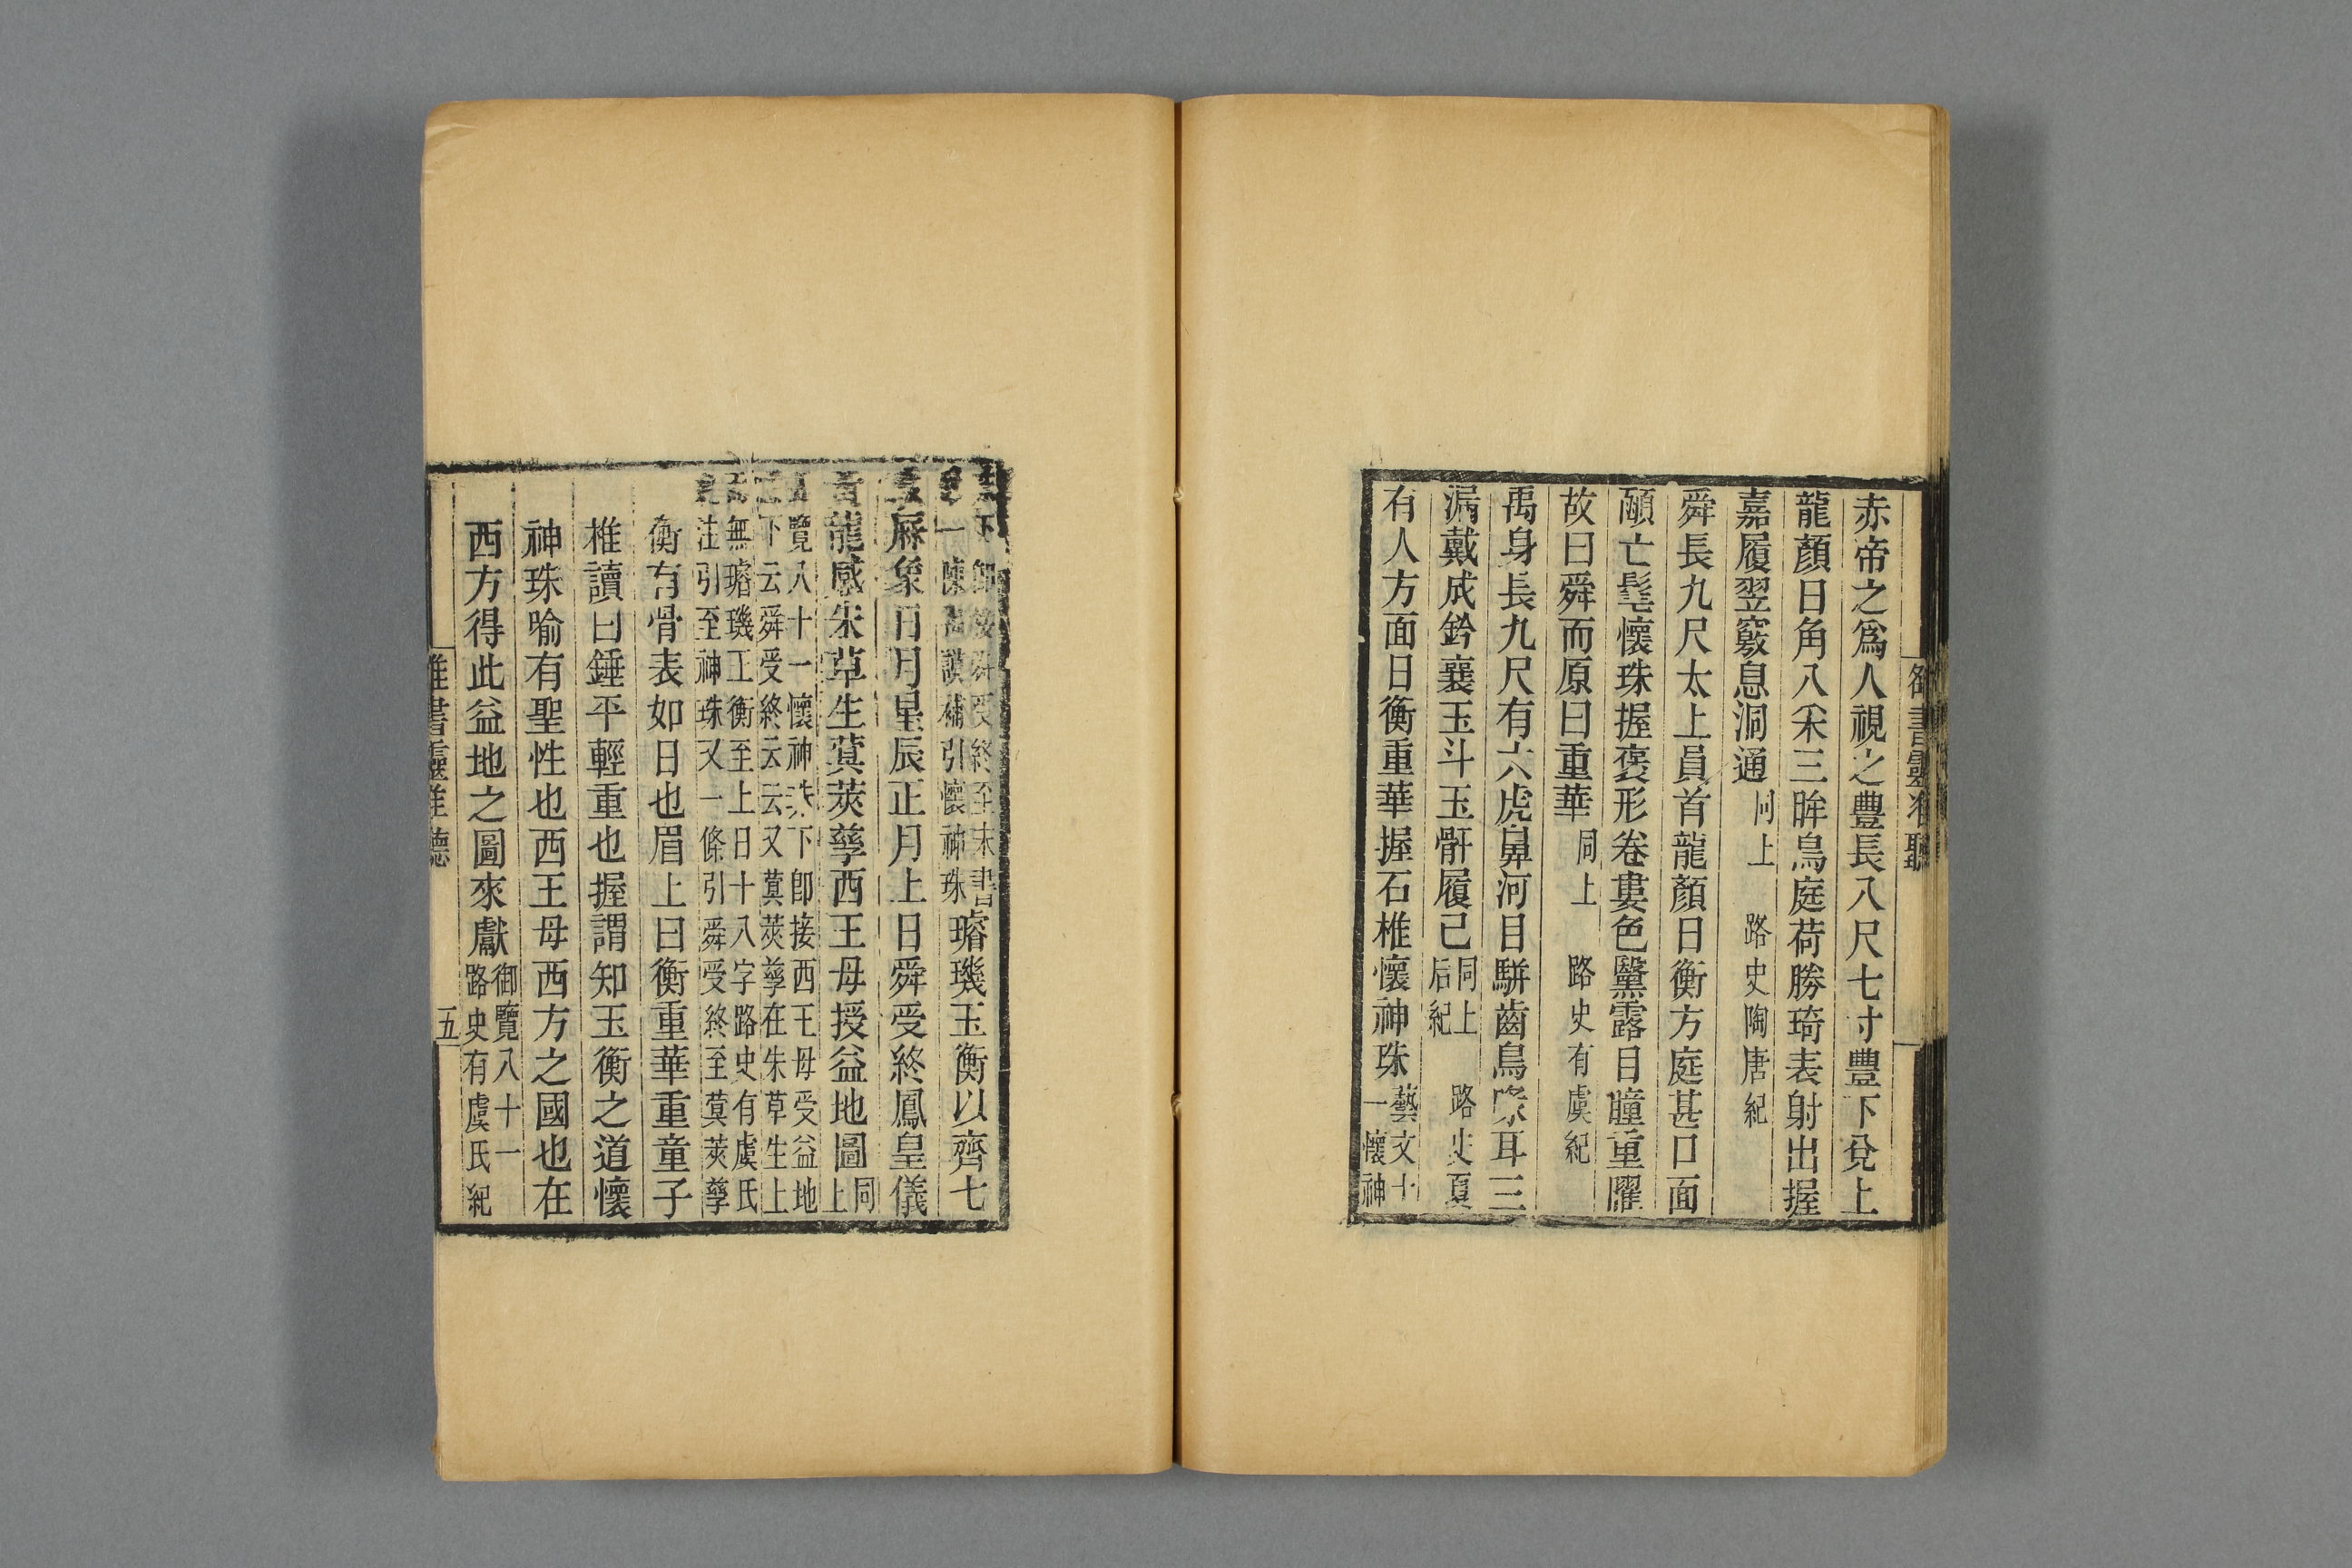 赤帝之爲人視之豐長八尺七寸豐下兌上
龍顏日角八釆三眸鳥庭荷勝琦表射出握
嘉履翌竅息洞通同上 路史陶唐紀
舜長九尺太上員首龍顏日衡方庭甚口面
顄亡髦懷珠握褒形卷婁色黳露目瞳重曜
故曰舜而原曰重華同上 路史有虞紀
禹身長九尺有六虎鼻河目駢齒鳥喙耳三
漏戴成鈐襄玉斗玉骭履己同上 路史夏
后紀
有人方面日衡重華握石椎懷神珠藝文十
一懷神
下卽接舜受終至末書
一懷 讓補引懷神珠
璿璣玉衡以齊七
麻象日月星辰正月上日舜受終鳳皇儀
龍感朱草生蓂莢孳西王母授益地圖同
上
覽八十一懷神珠下卽接西王母受益地
下云舜受終云云又蓂莢孳在朱草生上
無璿璣玉衡至上日十八字路史有虞氏
注引至神珠又一條引舜受終至蓂莢孳
衡有骨表如日也眉上曰衡重華重童子
椎讀曰錘平輕重也握謂知玉衡之道懷
神珠喻有聖性也西王母西方之國也在
西方得此益地之圖來獻御覽八十一
路史有虞氏紀
書靈準聽
五